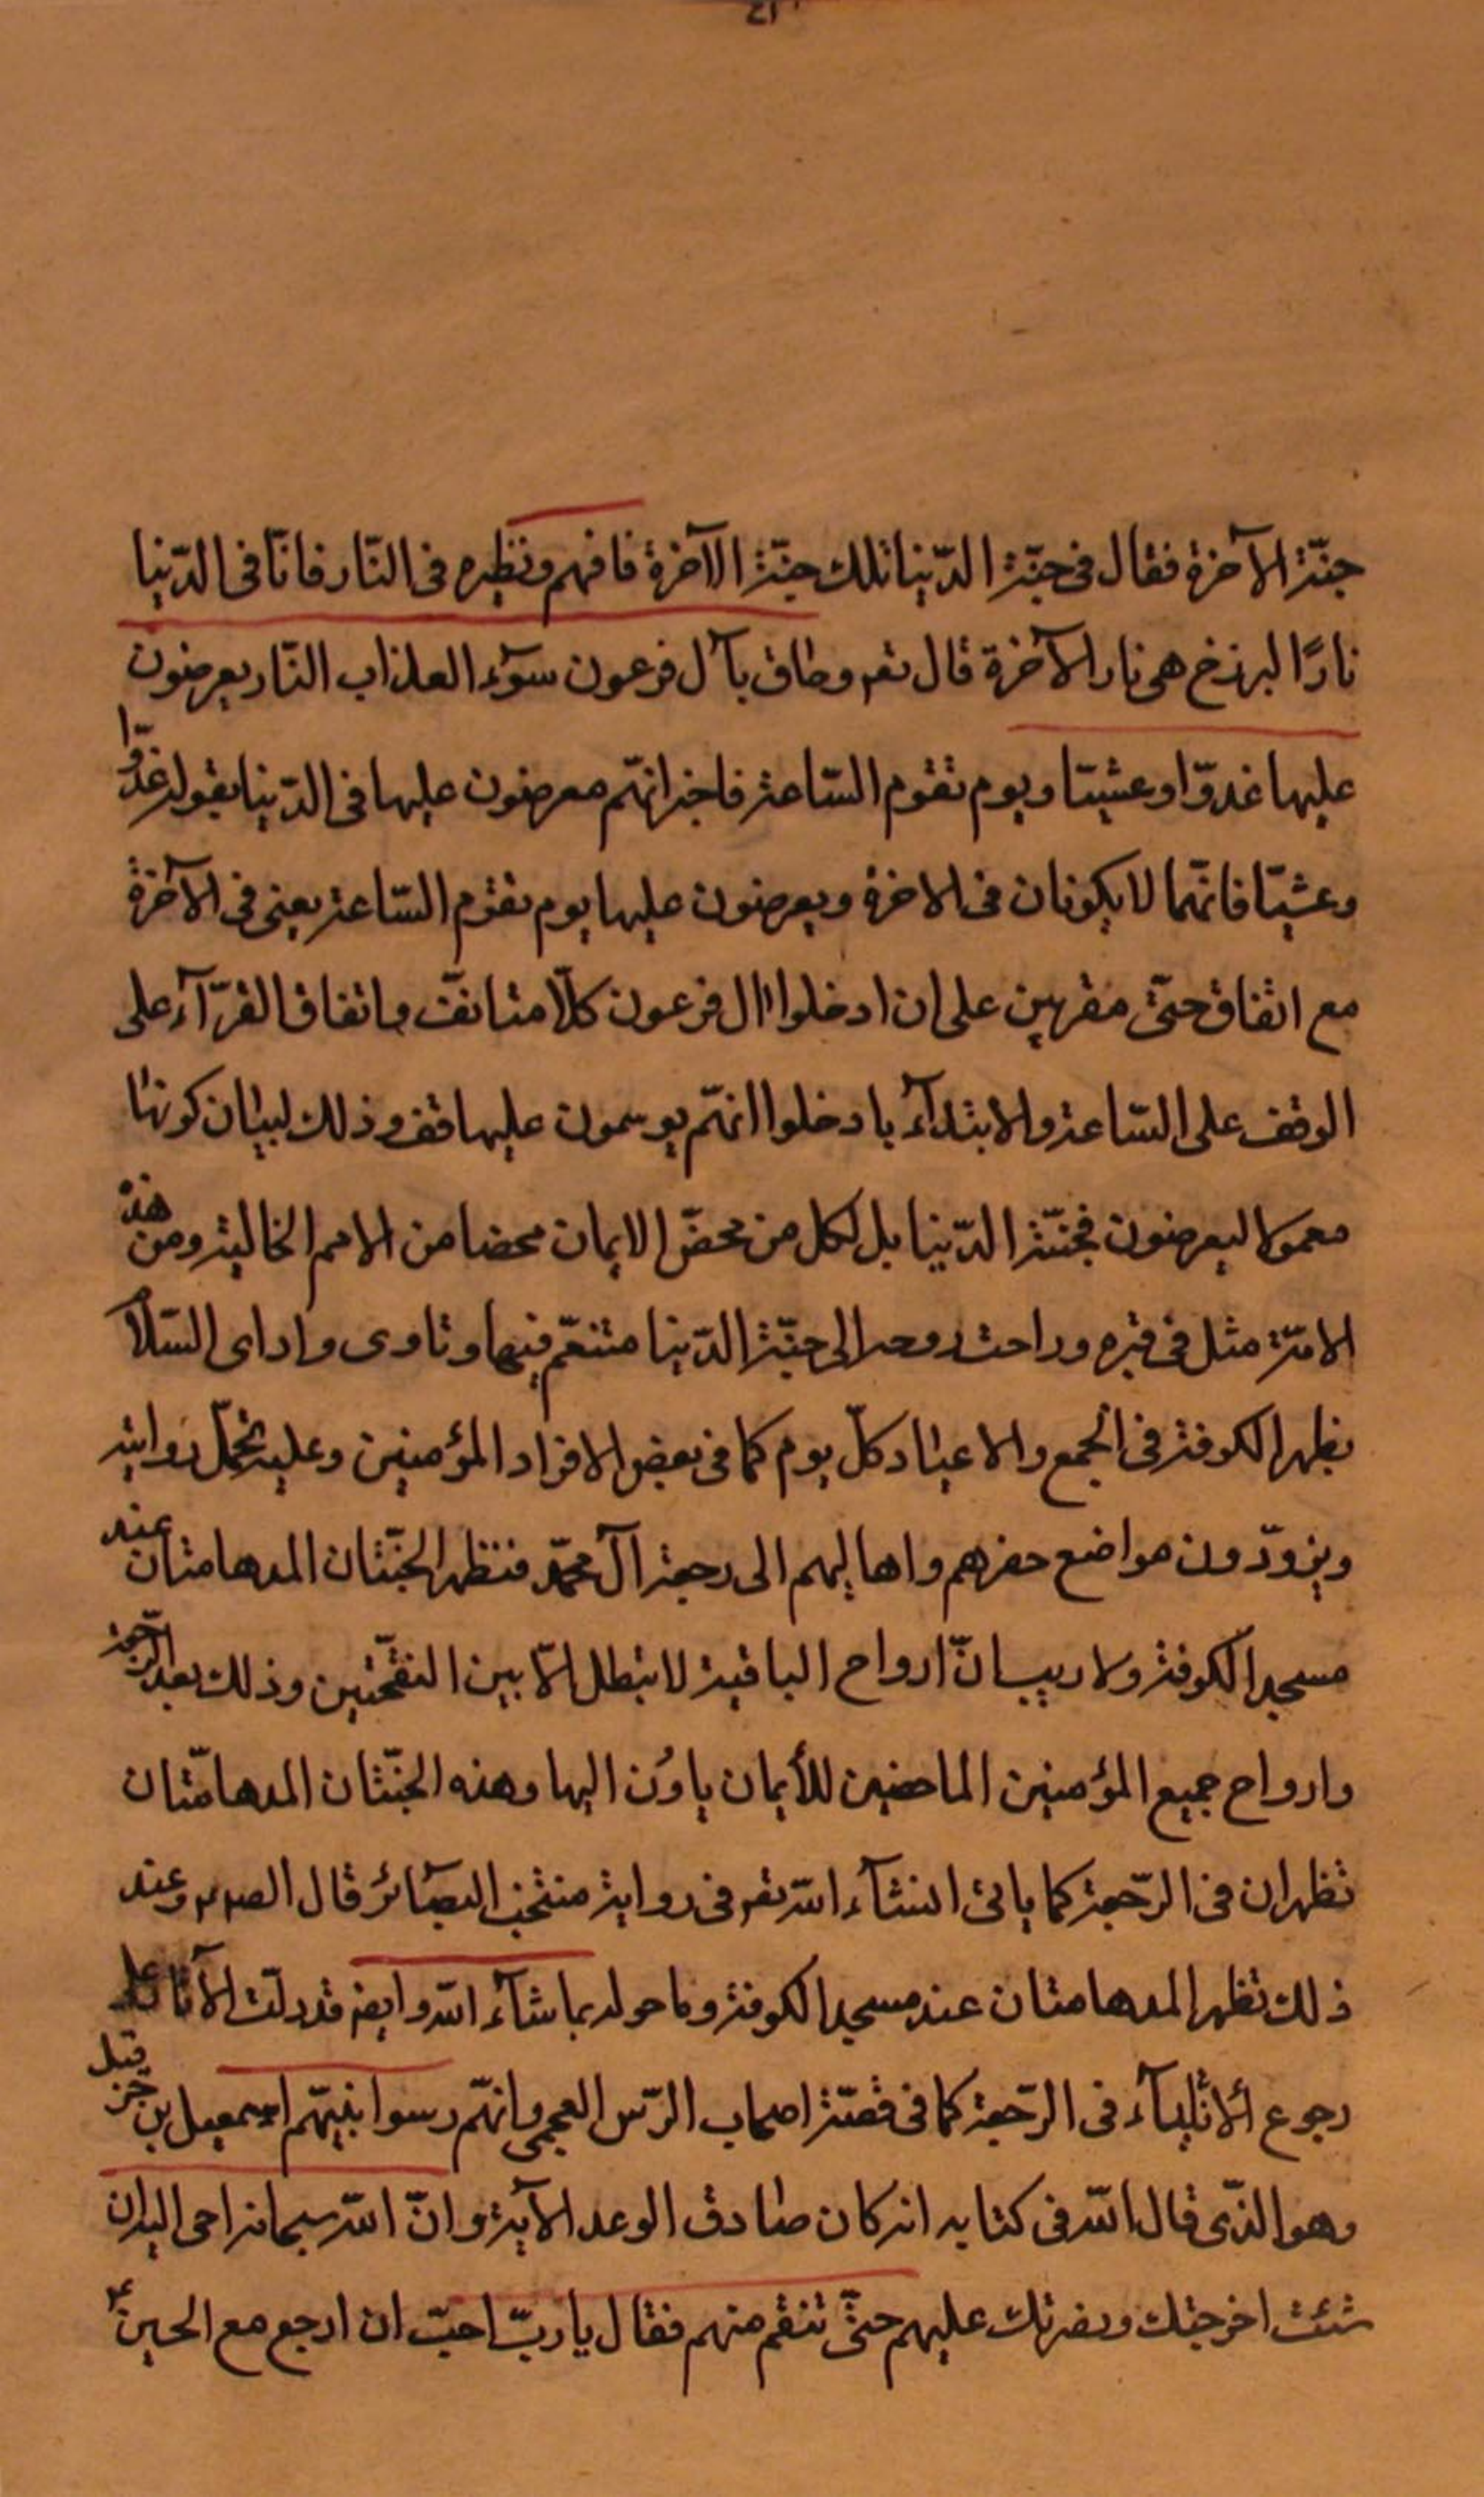 ٤١
جنّة الآخرة فقال فى جنّة الدّنيا تلك جنّة الآخرة فافهم ونظيره فى النّار فانّا فى الدّنيا
نارًا البرزخ هى نار الآخرة قال تعم وحاق بآل فرعون سوٓء العذاب النّار يعرضون
عليها غدوّا وعشيّا ويوم تقوم السّاعة فاخبر انّهم معرضون عليها فى الدّنيا بقوله غدوّا
وعشيّا فانّهما لا يكونان فى الاخرة ويعرضون عليها يوم تقوم السّاعة يعنى فى الآخرة
مع اتفاق حتّى مقرهين على ان ادخلوا ال فرعون كلّا متانف واتفاق القرّآء على
الوقف على السّاعة والابتدآء بادخلوا انهّم يوسمون عليها قف وذلك لبيان كونها
معمولا ليعرضون فجنّة الدّنيا بل لكل من محضّ الايمان محضا من الامم الخالية ومن هذه
الامّة مثل فى قبره وراحت روحه الى جنّة الدّنيا متنعّم فيها وتاوى وادى السّلام
بظهر الكوفة فى الجمع والاعياد كلّ يوم كما فى بعض الافراد المؤمنين وعليه تحمل رواية
ويزورّون مواضع حفرهم واهاليهم الى رجعة آل محمّد فتظهر الجنّتان المدهامتان عند
مسجد الكوفة ولا ريب انّ ارواح الباقية لا تبطل الّا بين النفختين وذلك بعد الرّجعة
وارواح جميع المؤمنين الماحضين للأيمان ياوُن اليها وهذه الجنّتان المدهامّتان
تظهران فى الرّجعة كما ياتى انشآء اللّه تعم فى رواية منتخب البصٓائر قال الصم وعند
ذلك تظهر المدهامتان عند مسجد الكوفة وما حوله بما شآء اللّه وايضم قد دلّت الآثار على
رجوع ألأنبيآء فى الرّجعة كما فى قصّة اصحاب الرّس العجمى وانهّم رسوا نبيّهم اسمعيل بن حزقيل
وهو الذّى قال اللّه فى كتابه انه كان صادق الوعد الآية وانّ اللّه سبحانه اوحى اليه ان
شئت اخرجتك ونصرتك عليهم حتّى تنقم منهم فقال يا ربّ احبّ ان ارجع مع الحسينؑ